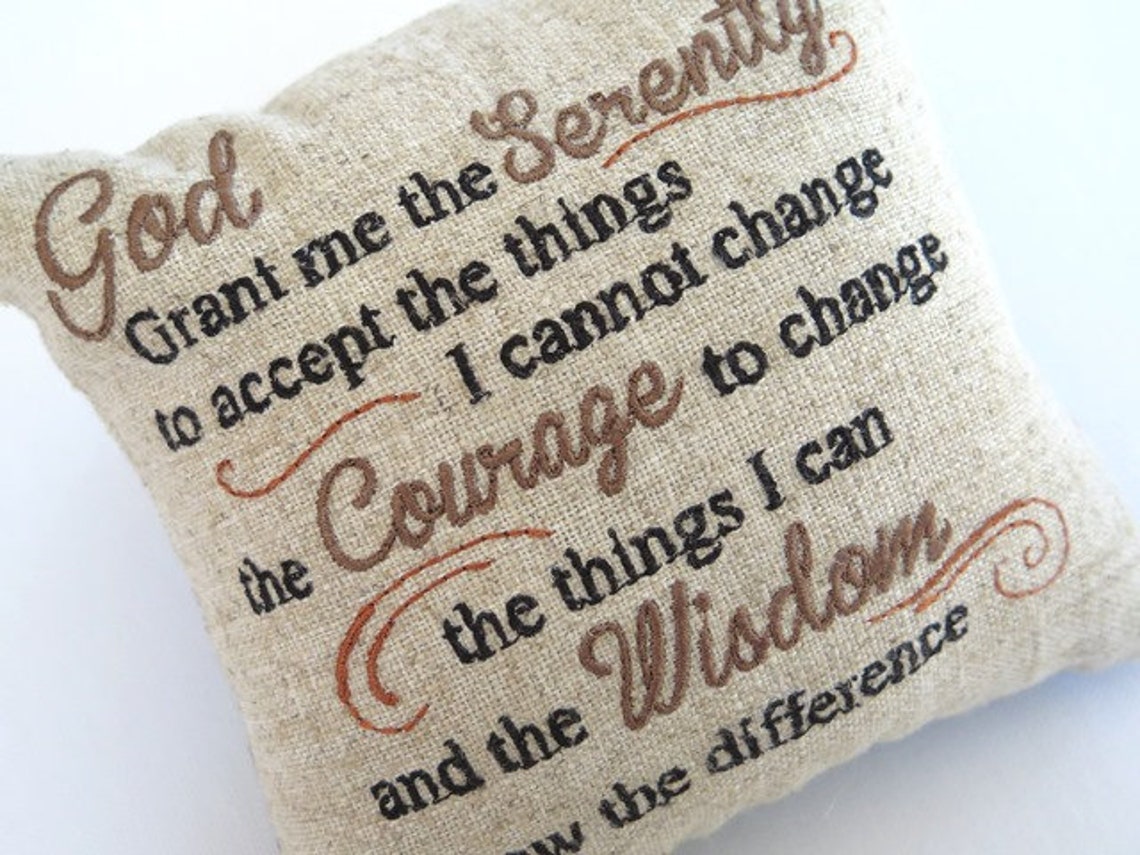 God
Grant me the Serenity
to accept the things
I cannot change
the Courage to change
the things I can
and the Wisdom
the difference